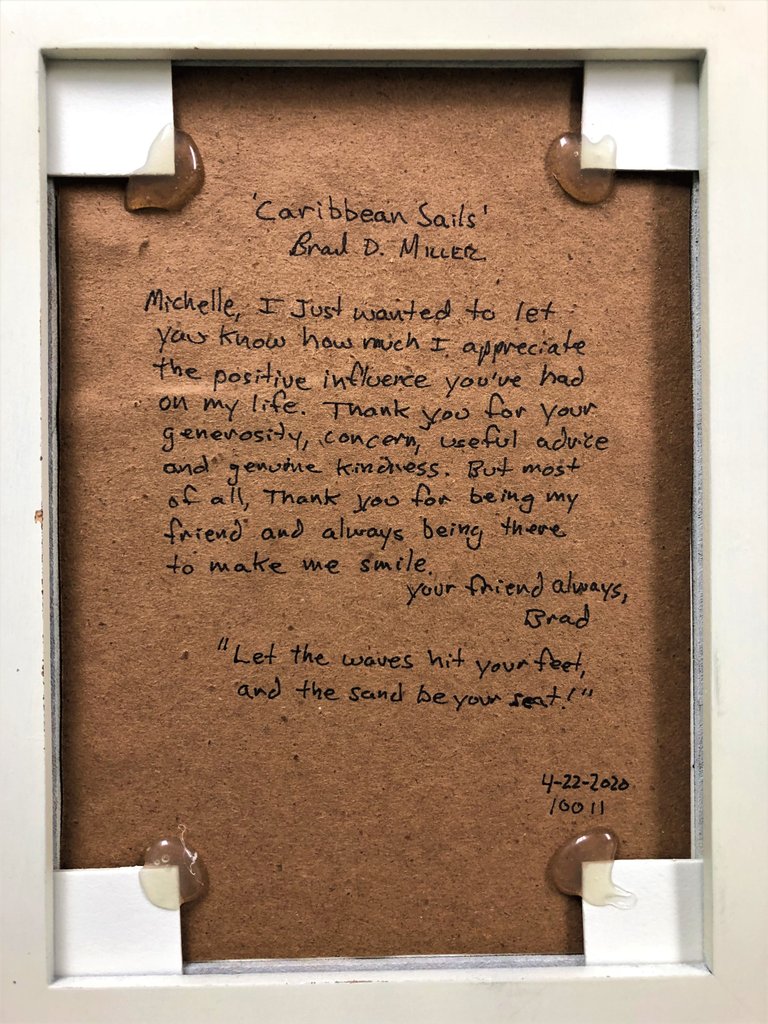 'Caribbean Sails'
Brad D. Miller
Michelle, I Just wanted to let
you know how much I appreciate
the positive influence you've had
on my life. Thank you for your
generosity, concern, useful advice
and genuine kindness. But most
of all, Thank you for being my
friend and always being there
to make me smile.
your friend always,
Brad
"Let the waves hit your feet,
and the sand be your seat!"
4-22-2020
10011